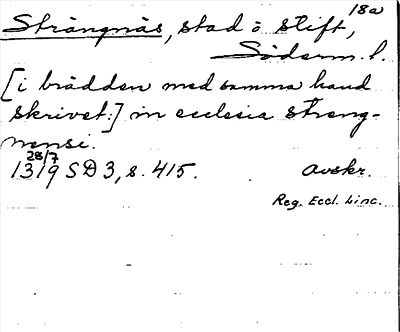 18a
Strängnäs, stad o stift,
Söderm. l.
[i brädden med samma hand
skrivet:] in ecclesia streng-
nensi.
28/7
1319 SD 3, s. 415. avskr.
Reg. Eccl. Linc.